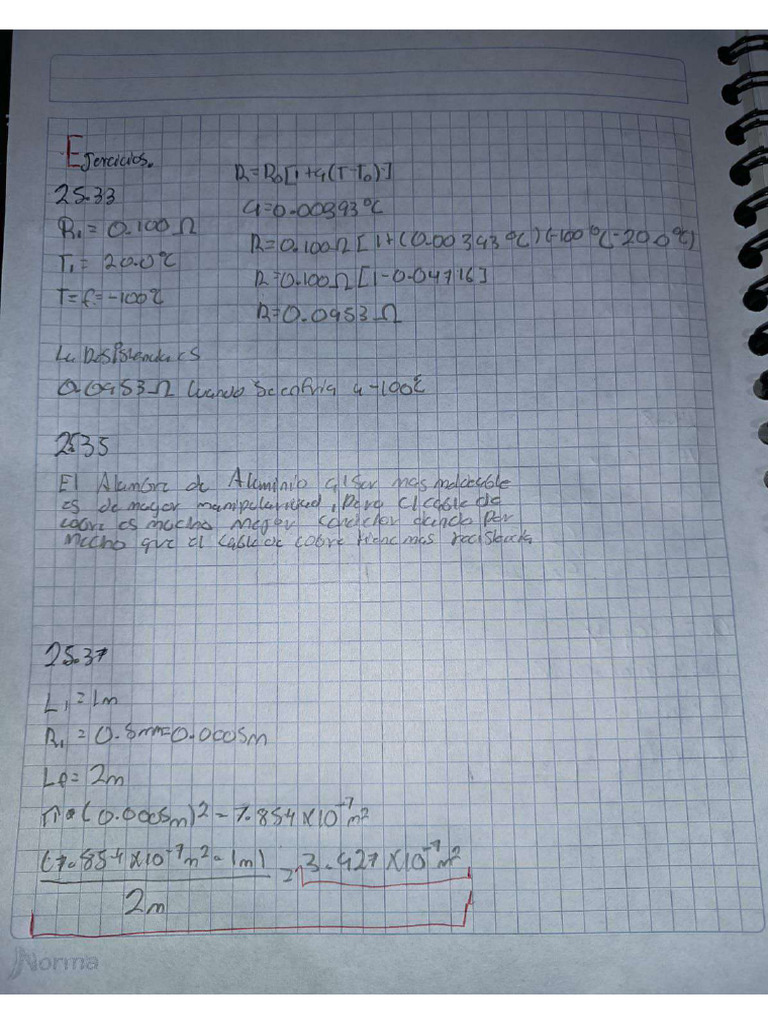 Ejercicios.
25.33
R₁ = 0.100Ω
T₁ = 20.0°C
T=f=-100°C
R=R₀[1+α(T-T₀)]
α=0.00393°C
R=0.100Ω[1+(0.00393°C)(-100°C-20.0°C)
R=0.100Ω[1-0.04716]
R=0.0953Ω
La Resistencia es
0.0953Ω Cuando se enfria a -100°C
25.35
El Alambre de Aluminio al ser mas maleable
es de mayor , Pero el cable de
cobre es mucho mejor conductor dando por
hecho que el cable de cobre tiene mas
25.37
L₁ = 1m
R₁ = 0.5mm=0.0005m
Lf= 2m
π•(0.0005m)² = 7.854×10⁻⁷m²
(7.854×10⁻⁷m² • 1m) = 3.927×10⁻⁷m²
2m
Norma